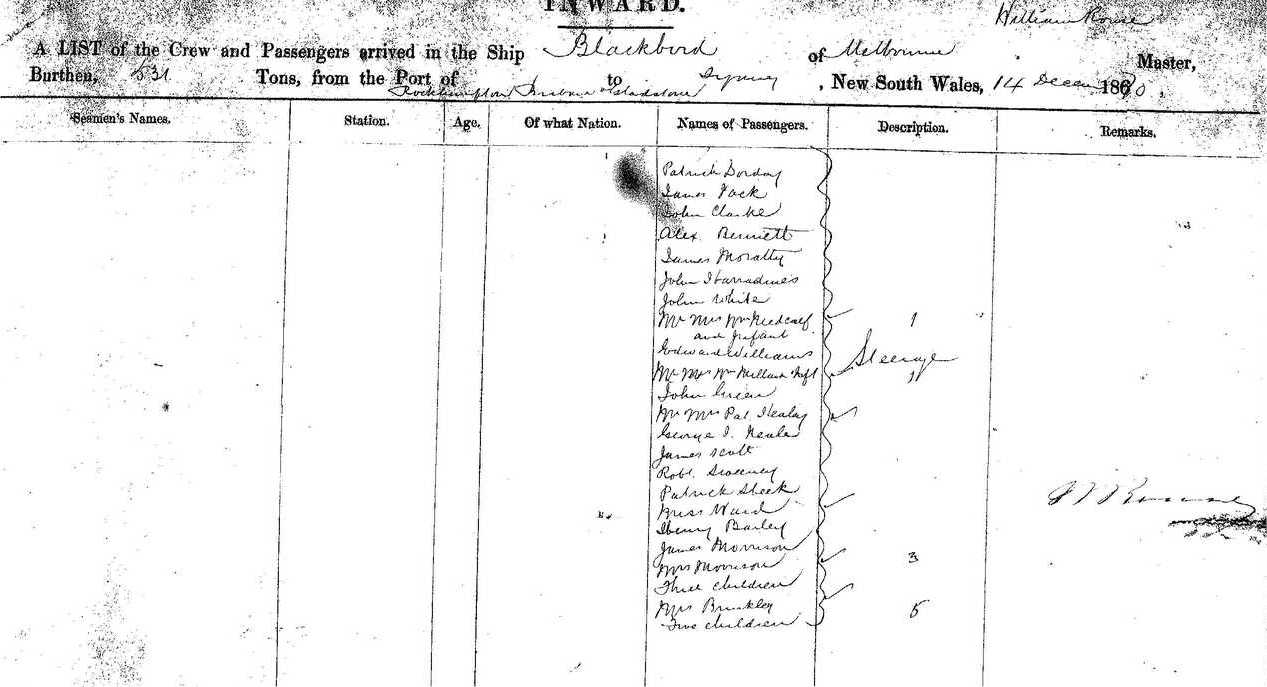 INWARD.
William Rouse
A LIST of the Crew and Passengers arrived in the Ship Blackbird of Melbourne Master,
Burthen, 531 Tons, from the Port of Rockhampton Brisbane & Gladstone to Sydney, New South Wales, 14 Decem 1870.
Seamen's Names. Station. Age. Of what Nation. Names of Passengers. Description. Remarks.
Patrick
James Jack
John Clarke
Alex. Bennett
James Moratty
John
John White
Mr Mrs Wm Medcalf 1
and Infant
Edward Williams Steerage
Mr Mrs Wm Inft 1
John Green
Mr Mrs Pat. Healey
George J. Neale
James Scott
Robt. Sweeney
Patrick Sheek
Miss Ward
Henry Barley
James Morrison
Mrs Morrison 3
Three children
Mrs Brinkley 5
Five children